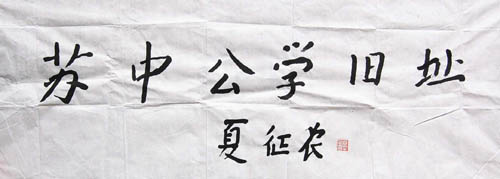 苏中公学旧址
夏征农